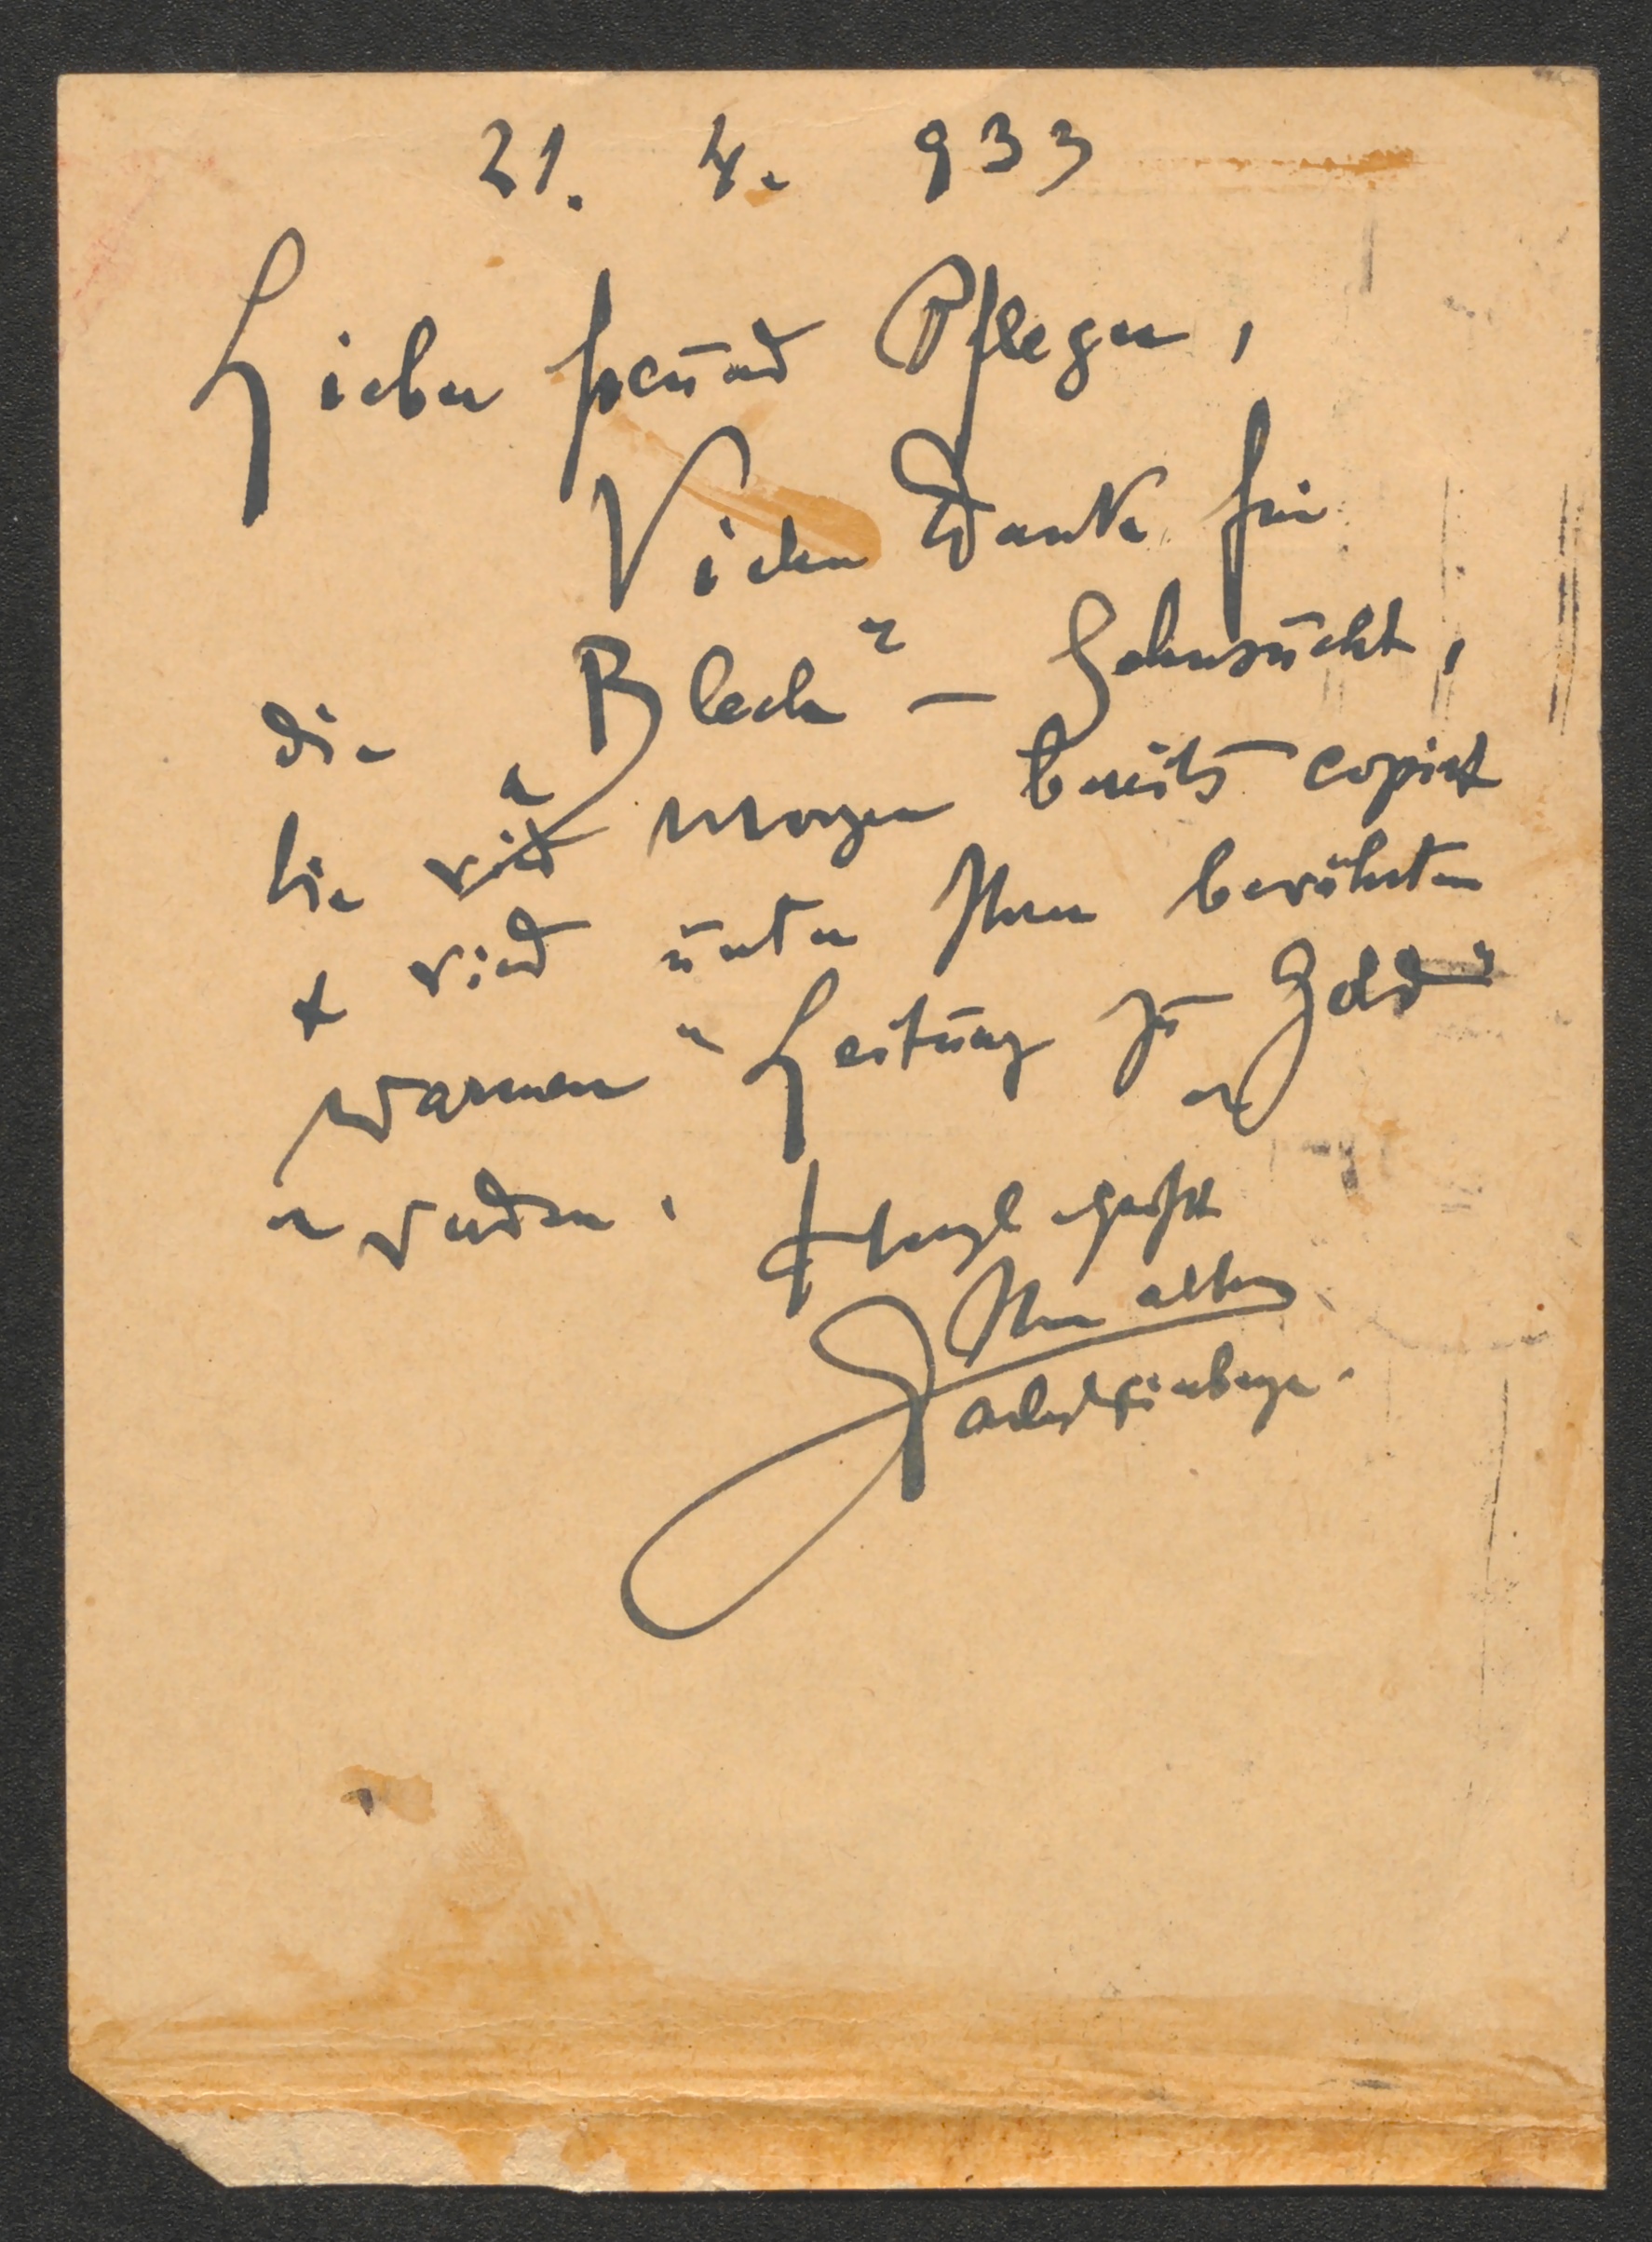 21. 4. 933
Lieber Freund Pfleger,
Vielen Dank für
die „Blech“ – Sehnsucht,
Sie wird morgen bereits copirt
& wird unter Ihrer bewährten
warmen Leitung zu „Gold“
werden.
Herzl grüßt
Ihr alter